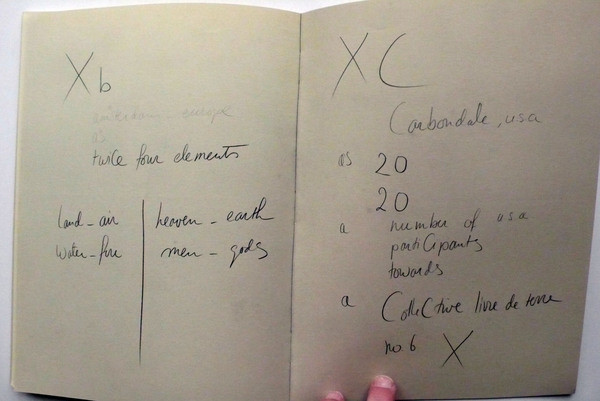 Xb
europe
as
twice four elements
land - air heaven - earth
water - fire men - gods
XC
Carbondale, usa
as 20
20
a number of usa
participants
towards
a Collective livre de terre
no. 6 X